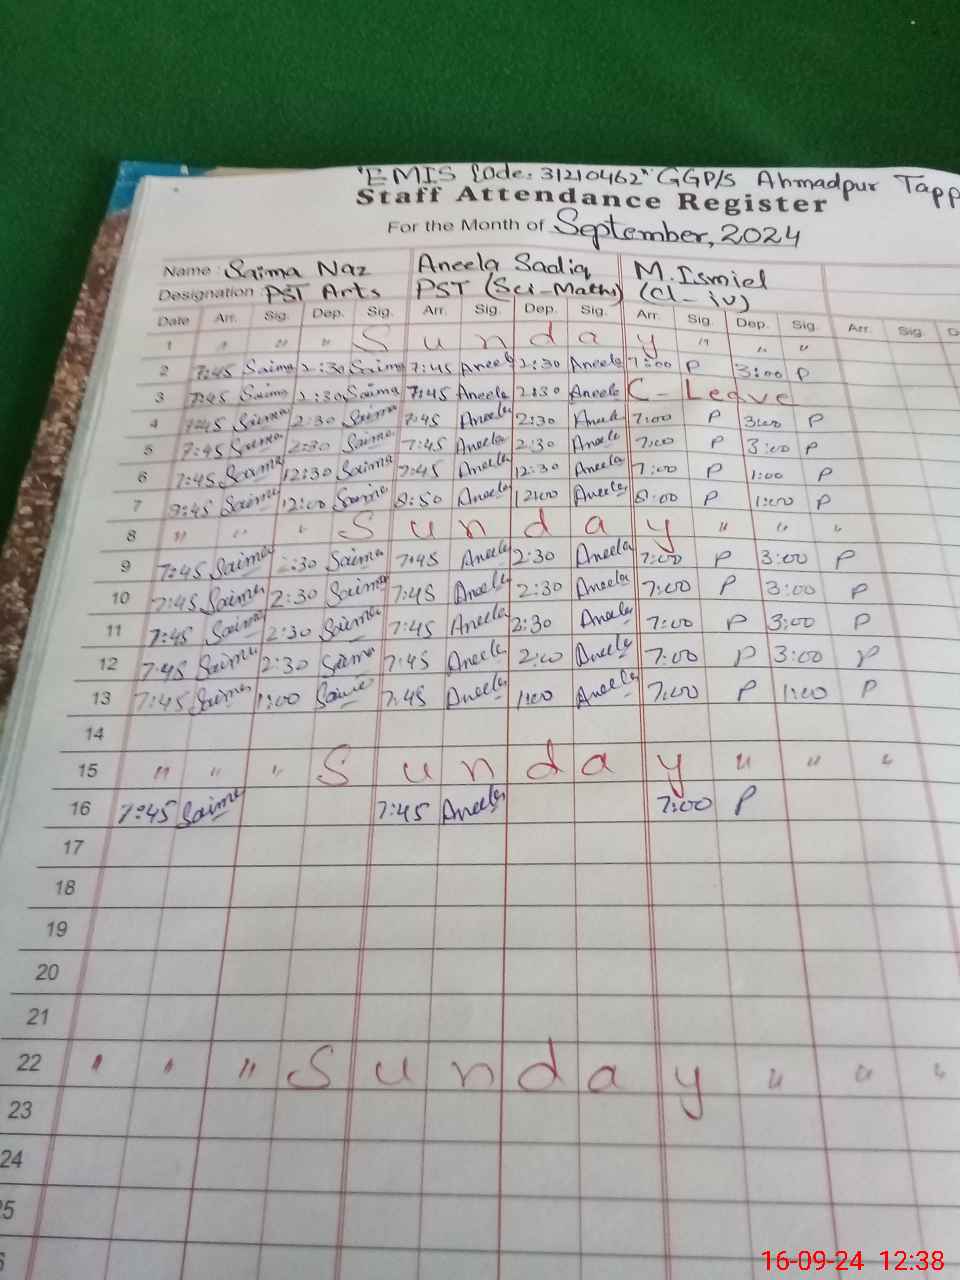 "EMIS Code: 31210462" GGP/S Ahmadpur Tapp
Staff Attendance Register
For the Month of September, 2024
Name : Saima Naz Aneela Sadiq M. Ismiel
Designation : PST Arts PST (Sci-Maths) (Cl-iv)
Date Arr. Sig. Dep. Sig. Arr. Sig. Dep. Sig. Arr. Sig. Dep. Sig. Arr. Sig. D
1 " " " Sunday " " "
2 7:45 Saima 2:30 Saima 7:45 Aneela 2:30 Aneela 7:00 P 3:00 P
3 7:45 Saima 2:30 Saima 7:45 Aneela 2:30 Aneela C-Leave
4 7:45 Saima 2:30 Saima 7:45 Aneela 2:30 Aneela 7:00 P 3:00 P
5 7:45 Saima 2:30 Saima 7:45 Aneela 2:30 Aneela 7:00 P 3:00 P
6 7:45 Saima 12:30 Saima 7:45 Aneela 12:30 Aneela 7:00 P 1:00 P
7 Saima 12:00 Saima 8:50 Aneela 12:00 Aneela 8:00 P 1:00 P
8 " " " Sunday " " "
9 7:45 Saima 2:30 Saima 7:45 Aneela 2:30 Aneela 7:00 P 3:00 P
10 7:45 Saima 2:30 Saima 7:45 Aneela 2:30 Aneela 7:00 P 3:00 P
11 7:45 Saima 2:30 Saima 7:45 Aneela 2:30 Aneela 7:00 P 3:00 P
12 7:45 Saima 2:30 Saima 7:45 Aneela 2:00 Aneela 7:00 P 3:00 P
13 7:45 Saima 1:00 Saima 7:45 Aneela 1:00 Aneela 7:00 P 1:00 P
14
15 " " " Sunday " " "
16 7:45 Saima 7:45 Aneela 7:00 P
17
18
19
20
21
22 " " " Sunday " " "
23
24
25
16-09-24 12:38